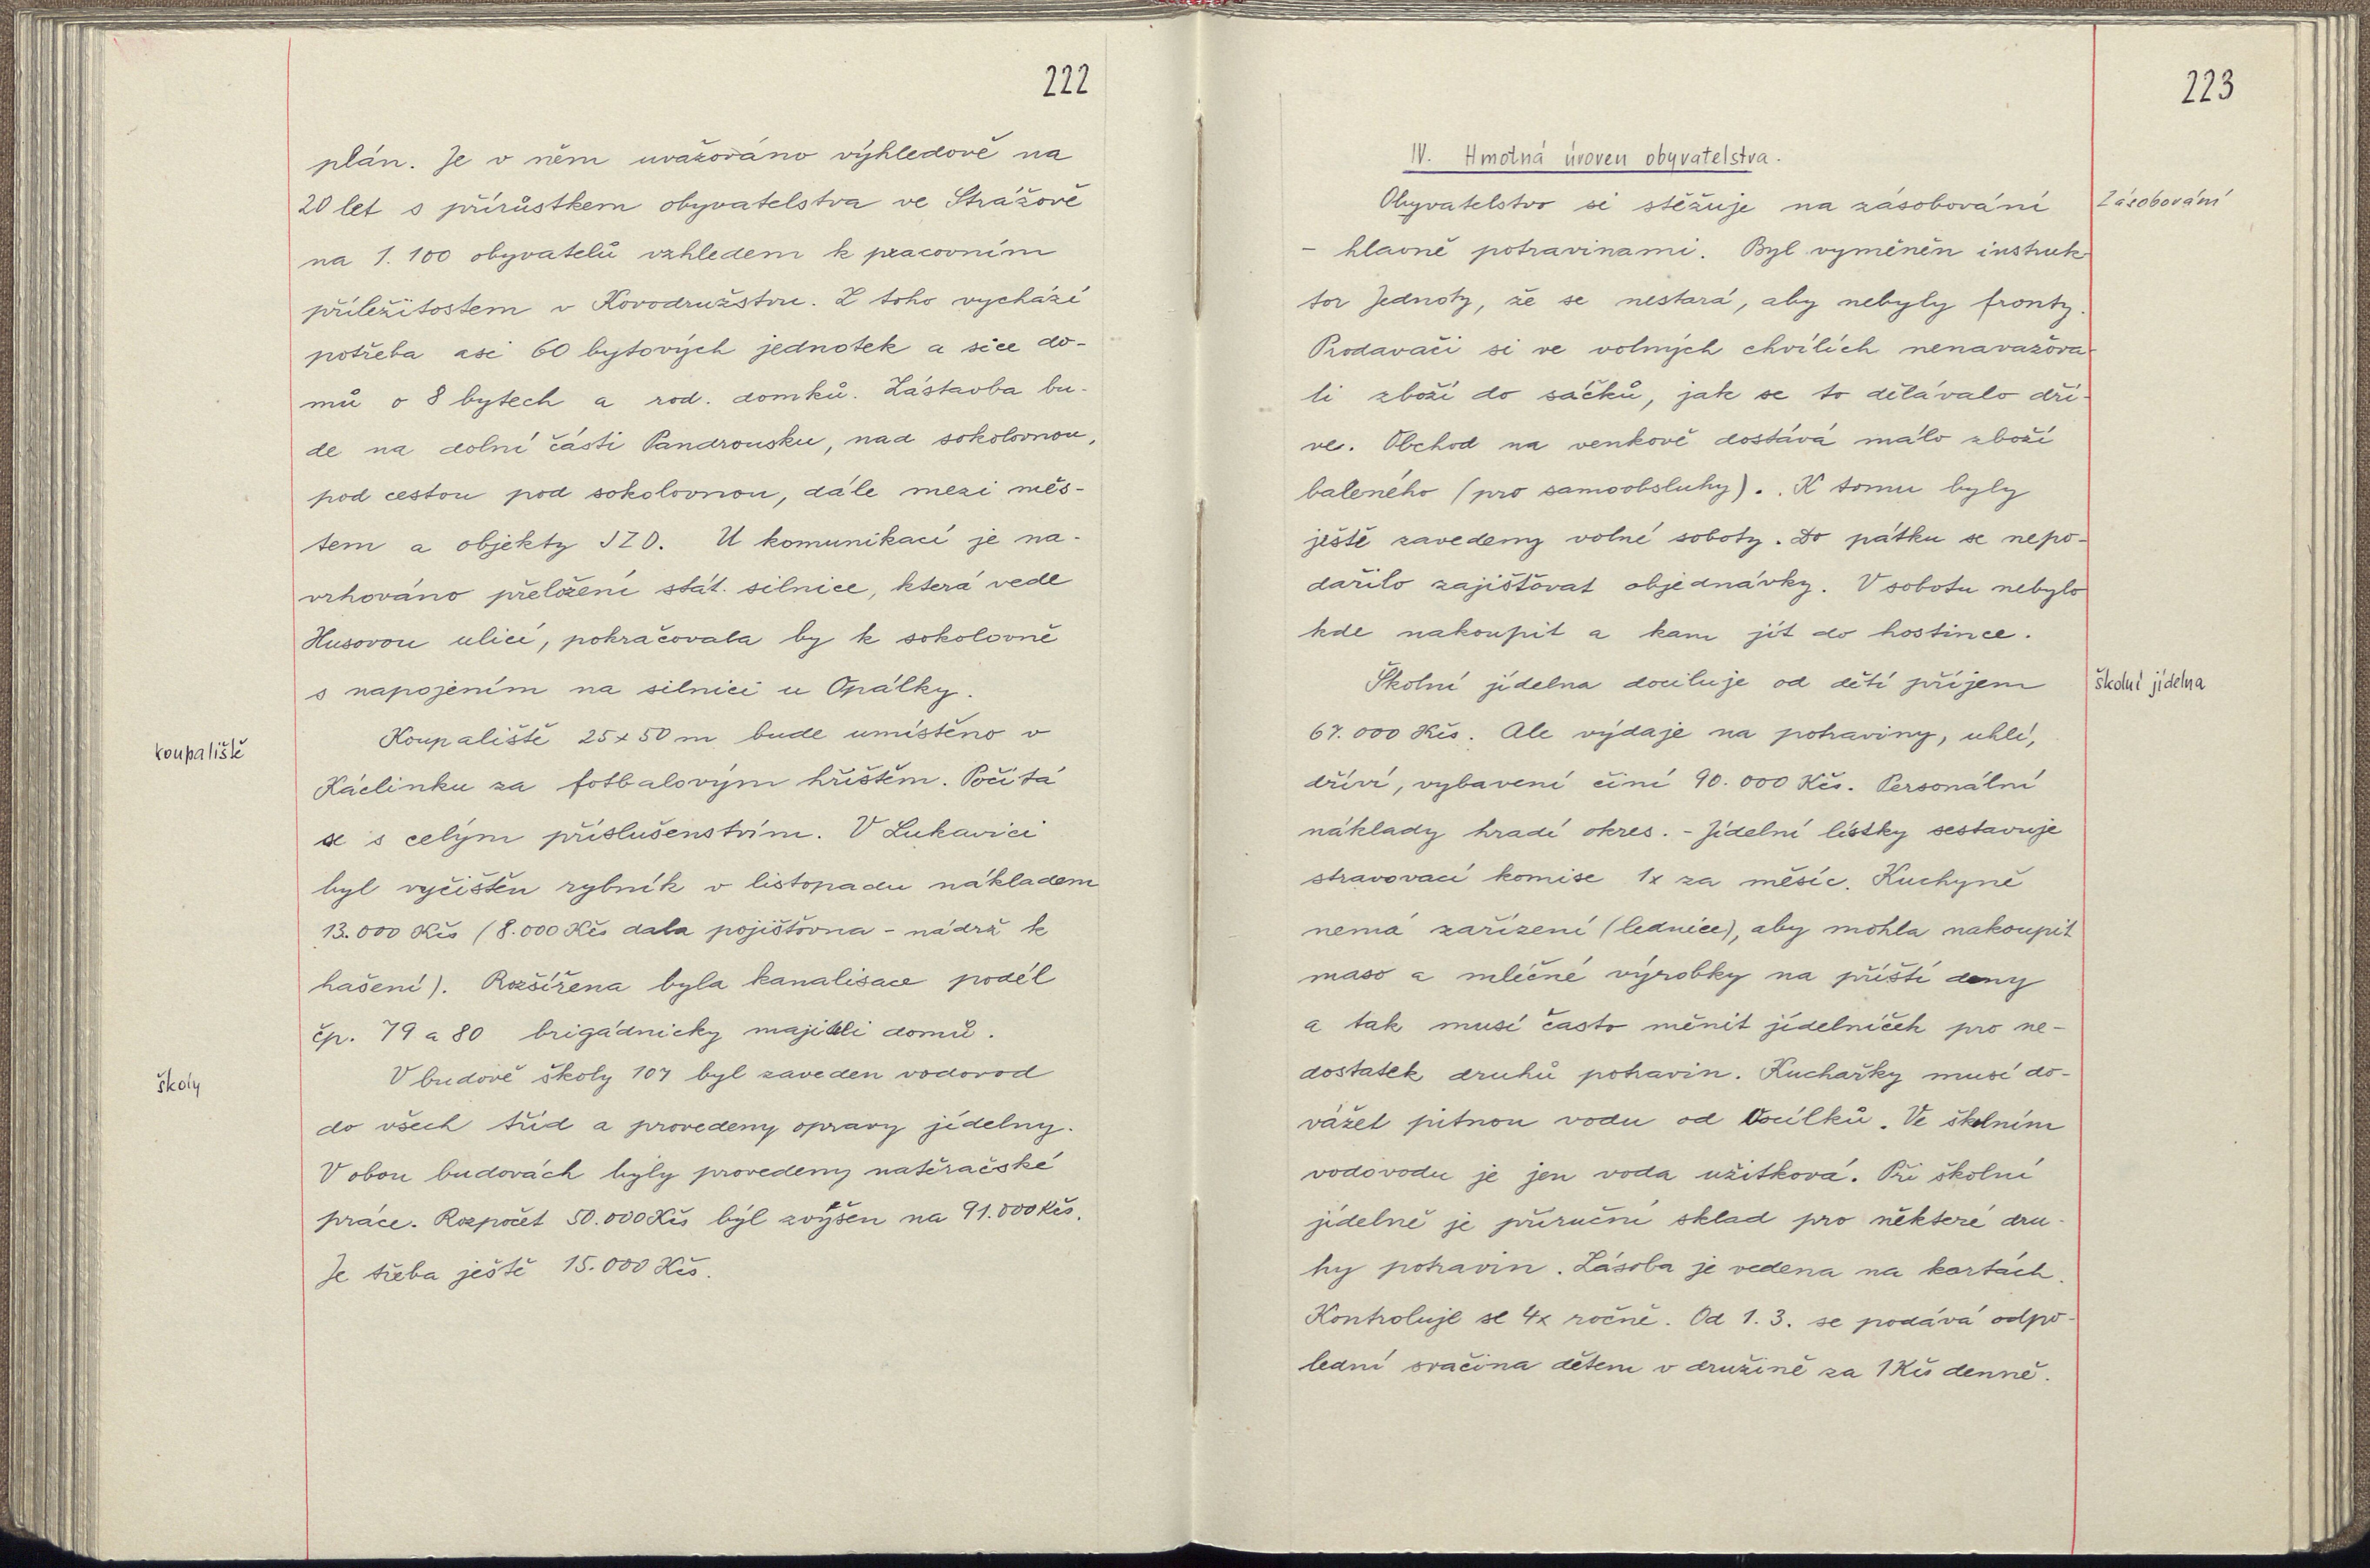 222
plán. Je v něm uvažováno výhledově na
20 let s přírůstkem obyvatelstva ve Strážově
na 1.100 obyvatelů vzhledem k pracovním
příležitostem v Kovodružstvu. Z toho vychází
potřeba asi 60 bytových jednotek a sice do-
mů o 8 bytech a rod. domků. Zástavba bu-
de na dolní části Pandrousku, nad sokolovnou,
pod cestou pod sokolovnou, dále mezi měs-
tem a objekty JZD. U komunikací je na-
vrhováno přeložení stát. silnice, která vede
Husovou ulicí, pokračovala by k sokolovně
s napojením na silnici u Opálky.
koupaliště
Koupaliště 25x50 m bude umístěno v
Káclinku za fotbalovým hřištěm. Počítá
se s celým příslušenstvím. V Lukavici
byl vyčištěn rybník v listopadu nákladem
13.000 Kčs (8.000 Kčs dala pojišťovna - nádrž k
hašení). Rozšířena byla kanalisace podél
čp. 79 a 80 brigádnicky majiteli domů.
školy
V budově školy 107 byl zaveden vodovod
do všech tříd a provedeny opravy jídelny.
V obou budovách byly provedeny natěračské
práce. Rozpočet 50.000 Kčs byl zvýšen na 91.000 Kčs.
Je třeba ještě 15.000 Kčs.
223
IV. Hmotná úroveň obyvatelstva.
Obyvatelstvo si stěžuje na zásobování
Zásobování
- hlavně potravinami. Byl vyměněn instruk-
tor Jednoty, že se nestará, aby nebyly fronty.
Prodavači si ve volných chvílích nenavažova-
li zboží do sáčků, jak se to dělávalo dří-
ve. Obchod na venkově dostává málo zboží
baleného (pro samoobsluhy).. K tomu byly
ještě zavedeny volné soboty. Do pátku se nepo-
dařilo zajišťovat objednávky. V sobotu nebylo
kde nakoupit a kam jít do hostince.
Školní jídelna dociluje od dětí příjem
školní jídelna
67.000 Kčs. Ale výdaje na potraviny, uhlí,
dříví, vybavení činí 90.000 Kčs. Personální
náklady hradí okres. - Jídelní lístky sestavuje
stravovací komise 1x za měsíc. Kuchyně
nemá zařízení (lednice), aby mohla nakoupit
maso a mléčné výrobky na příští dny
a tak musí často měnit jídelníček pro ne-
dostatek druhů potravin. Kuchařky musí do-
vážet pitnou vodu od Vocílků. Ve školním
vodovodu je jen voda užitková. Při školní
jídelně je příruční sklad pro některé dru-
hy potravin. Zásoba je vedena na kartách.
Kontroluje se 4x ročně. Od 1.3. se podává odpo-
lední svačina dětem v družině za 1 Kčs denně.